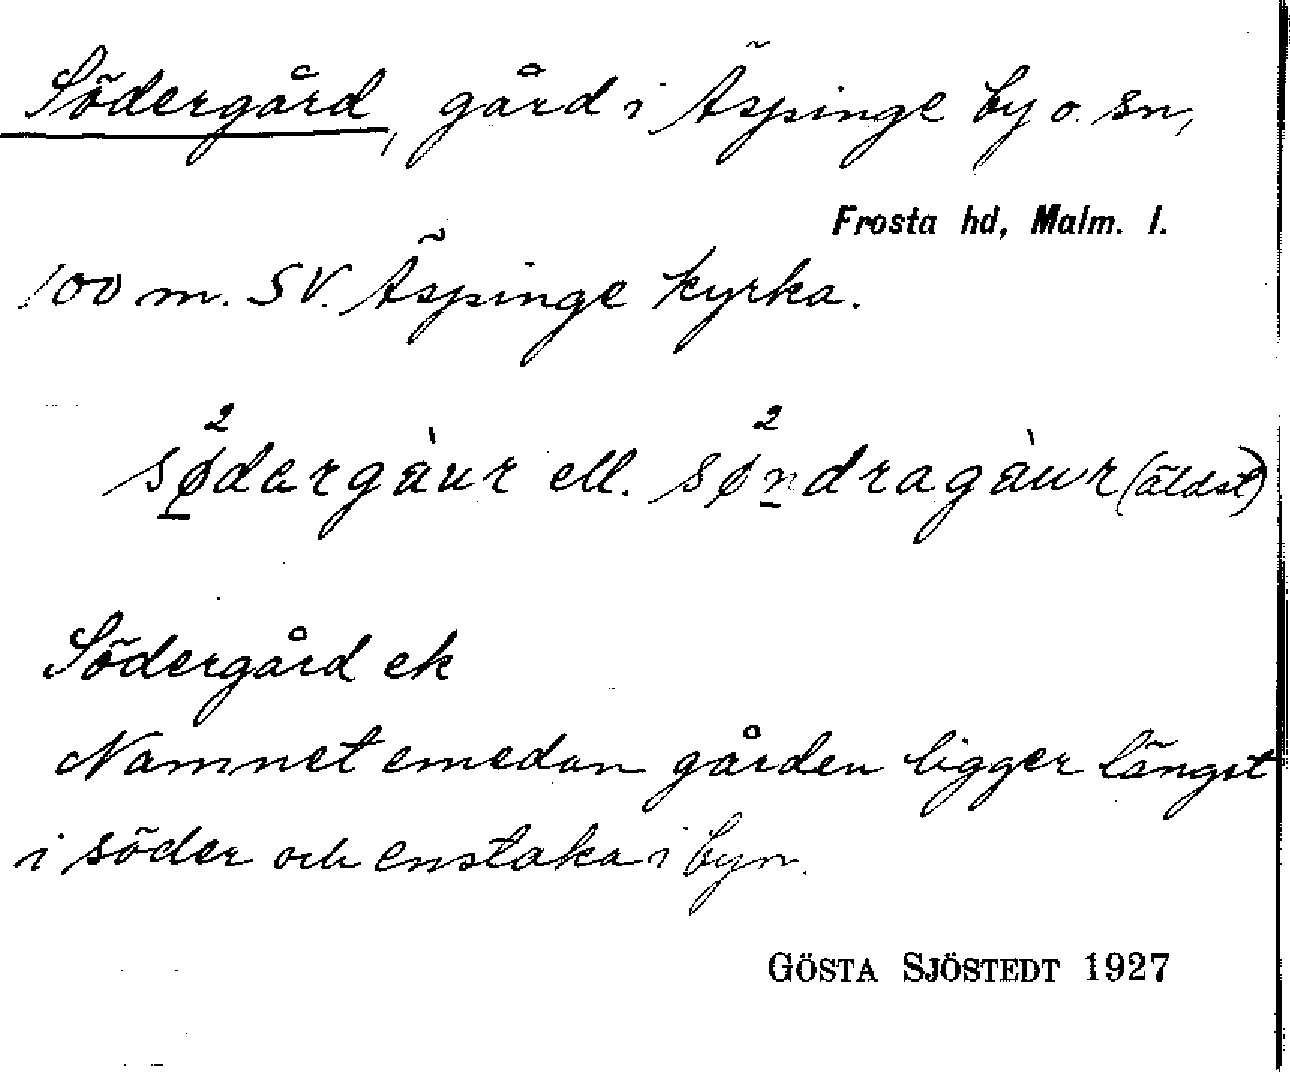 Södergård, gård i Äspinge by o. sn,
Frosta hd, Malm. l.
100 m. SV. Äspinge kyrka.
sø²dargàur ell. sø²ndragàur (äldst)
Södergård ek
Namnet emedan gården ligger längst
i söder och enstaka i byn.
GÖSTA SJÖSTEDT 1927